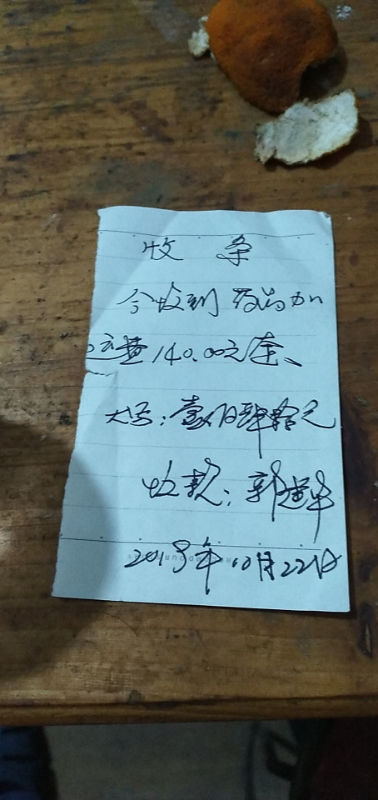 收条
今收到 苟加
运费140.00元查、
大写：壹佰肆拾元
收款：郭
2019年10月22日